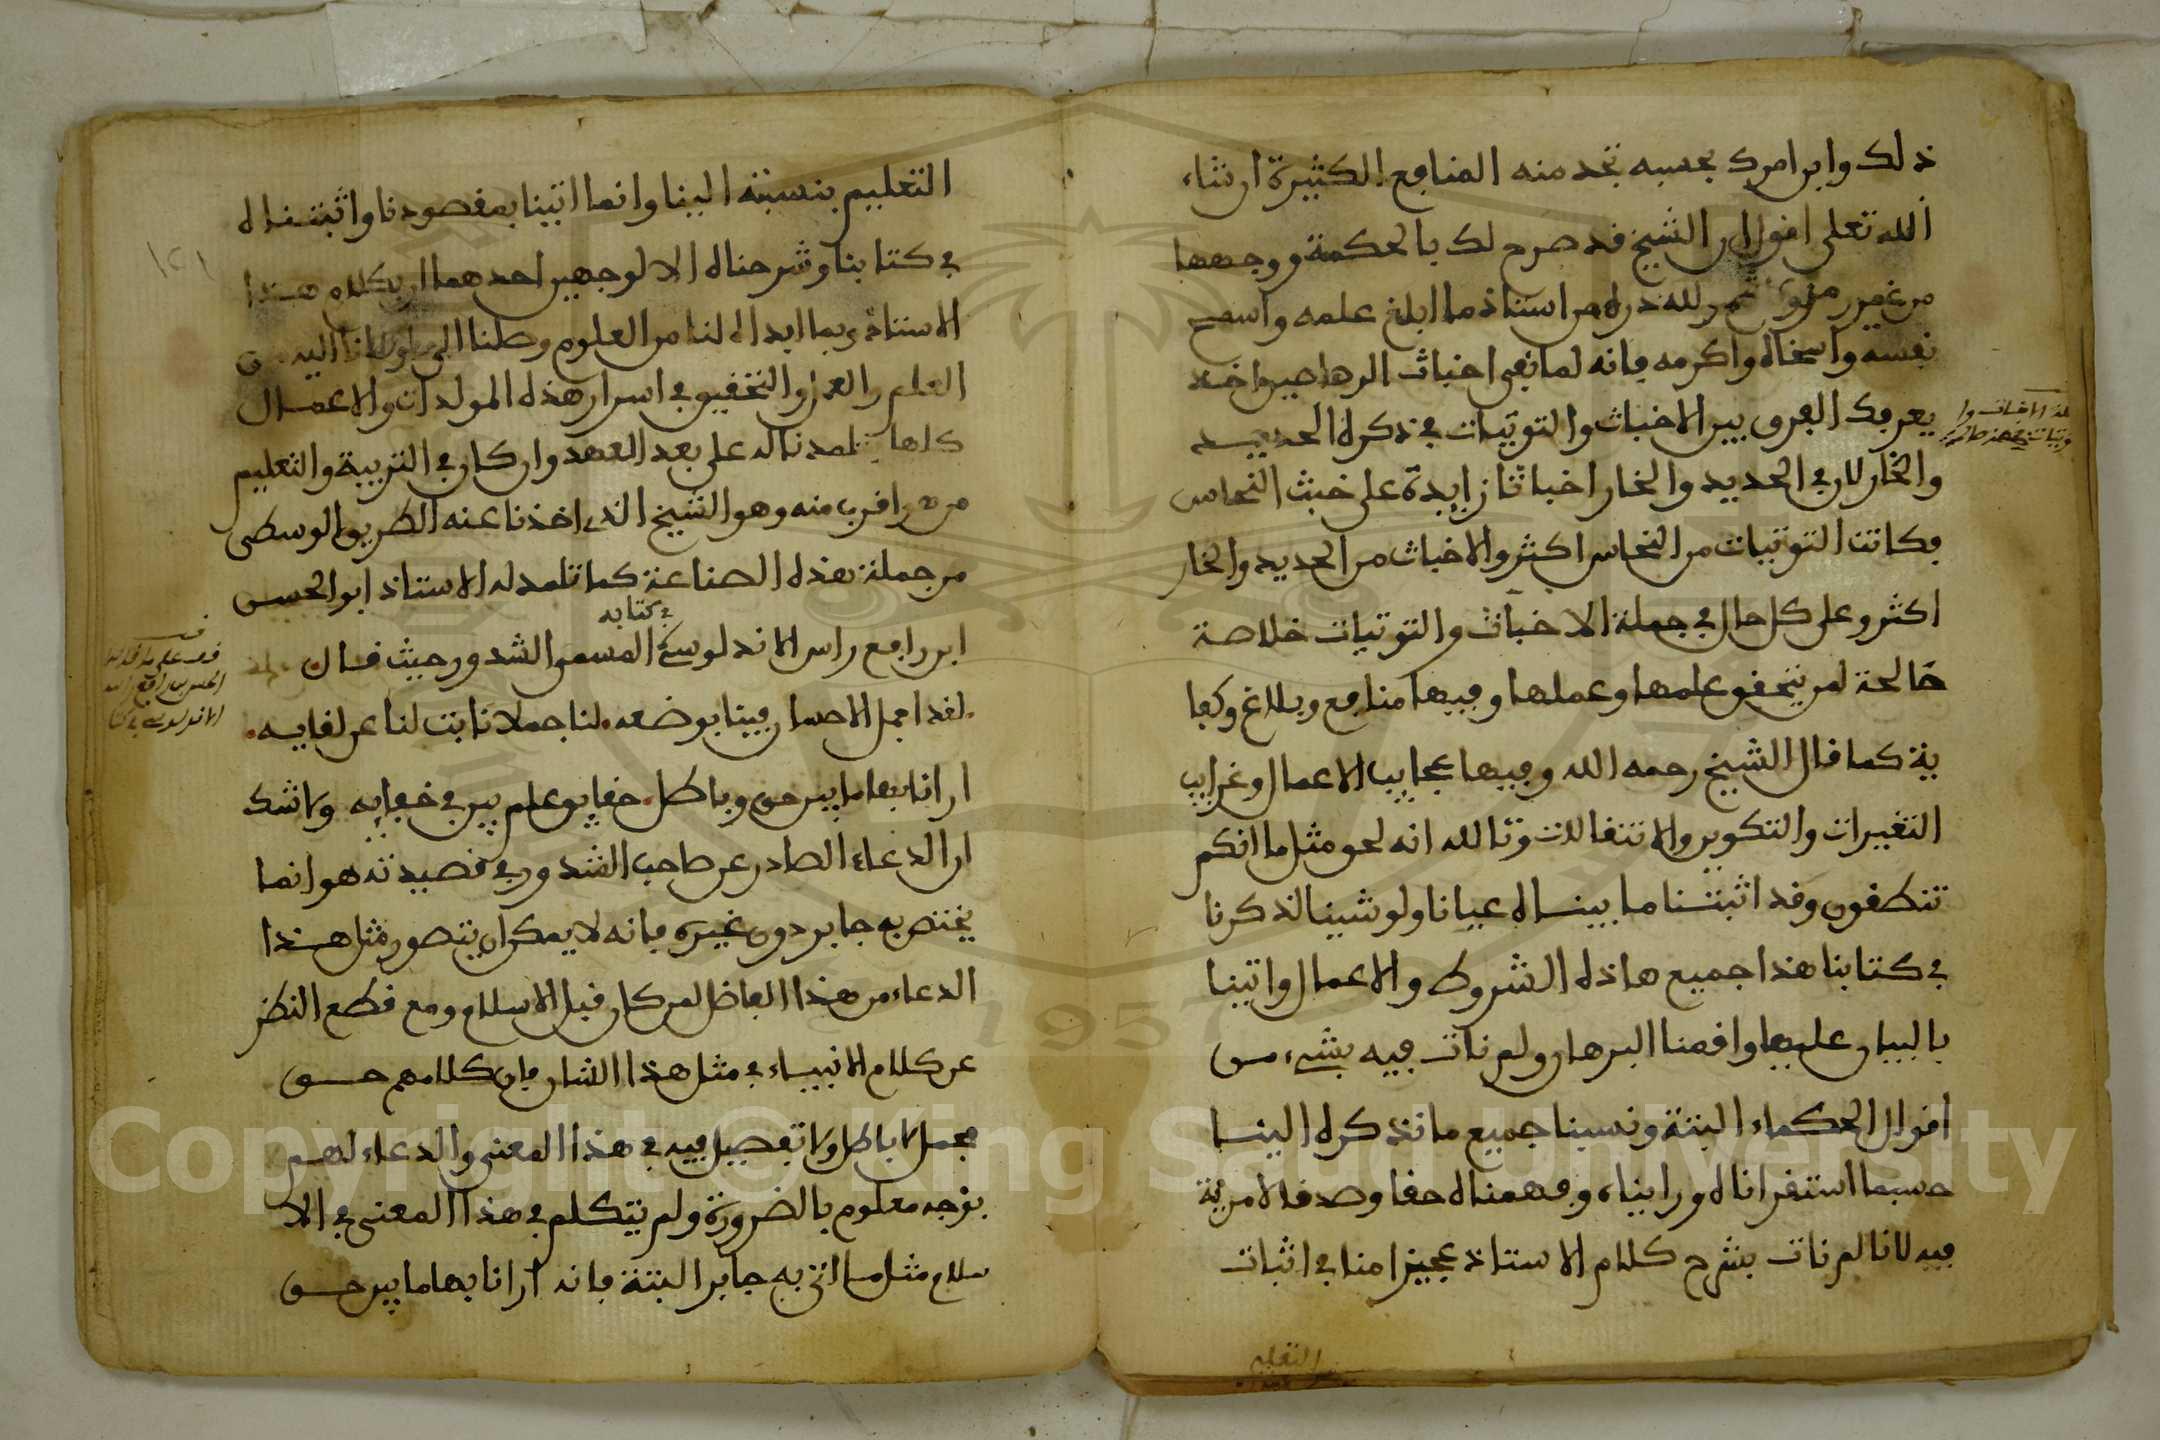 ذلك وابن امرك بحسبه تجد منه المنافع الكثيرة ان شاء
الله تعلى اقول ان الشيخ قد صرح لك بالحكمة ووجهها
من غير رموز لله دره من استاذ ما ابلغ علمه واسمح
نفسه واسخاه واكرمه فانه لما نفى اخباث الرهاصين اخذ
يعرفك الفرق بين الاخباث والتوتيات في ذكره الحديد
والخار لان في الحديد والخار اخباثا زايدة على خبث النحاس
فكانت التوتيات من النحاس اكثر والاخباث من الحديد والخار
اكثر وعلى كل حال في جملة الاخباث والتوتيات خلاصة
صالحة لمن يتحقق علمها وعملها وفيها منافع وبلاغ وكفا
ية كما قال الشيخ رحمه الله وفيها عجايب الاعمال وغرايب
التغيرات والتكوين والانتقالات وتالله انه لحق مثل ما انكم
تنطقون وقد اثبتنا ما بيناه عيانا ولو شينا لذكرنا
في كتابنا هذا جميع هاذه الشروط والاعمال واتينا
بالبيان عليها واقمنا البرهان ولم نات فيه بشيء من
اقوال الحكماء البتة ونسبنا جميع ما نذكره الينا
حسبما استقراناه ورايناه وفهمناه حقا وصدقا لا مرية
فيه لانا لم نات بشرح كلام الاستاذ عجزا منا في اثبات
التعليم
التعليم بنسبته الينا وانما اتينا بمقصودنا واثبتناه
في كتابنا وشرحناه الا لوجهين احدهما ان بكلام هذا
الاستاذ وبما ابداه لنا من العلوم وصلنا الى ما وصلنا اليه من
العلم والعمل والتحقيق في اسرار هذه المولدات والاعمال
كلها تلمذنا له على بعد العهد وان كان في التربية والتعليم
من هو اقرب منه وهو الشيخ الذي اخذنا عنه الطريق الوسطى
من جملة هذه الصناعة كما تلمذ له الاستاذ ابو الحسن
في كتابه
ابن رافع راس الاندلوسي المسمى الشذور حيث قال
لقد اجمل الاحسان فينا بوضعه لنا جملا نابت لنا عن لقايه
ارانا بها ما بين حق وباطل حقايق علم بين في خفايه ولا شك
ان الدعاء الصادر عن صاحب الشذور في قصيدته هو انما
يختص به جابر دون غيره فانه لا يمكن ان يتصور مثل هذا
الدعاء من هذا الفاضل لمن كان قبل الاسلام ومع قطع النظر
عن كلام الانبياء في مثل هذا الشان فان كلامهم حق
مجمل لا باطل ولا تفصيل فيه في هذا المعنى والدعاء لهم
بوجه معلوم بالضرورة ولم يتكلم في هذا المعنى في الا
سلام مثل ما اتى به جابر البتة فانه ارانا بها ما بين حق
١٢١
Copyright © King Saud University
1957